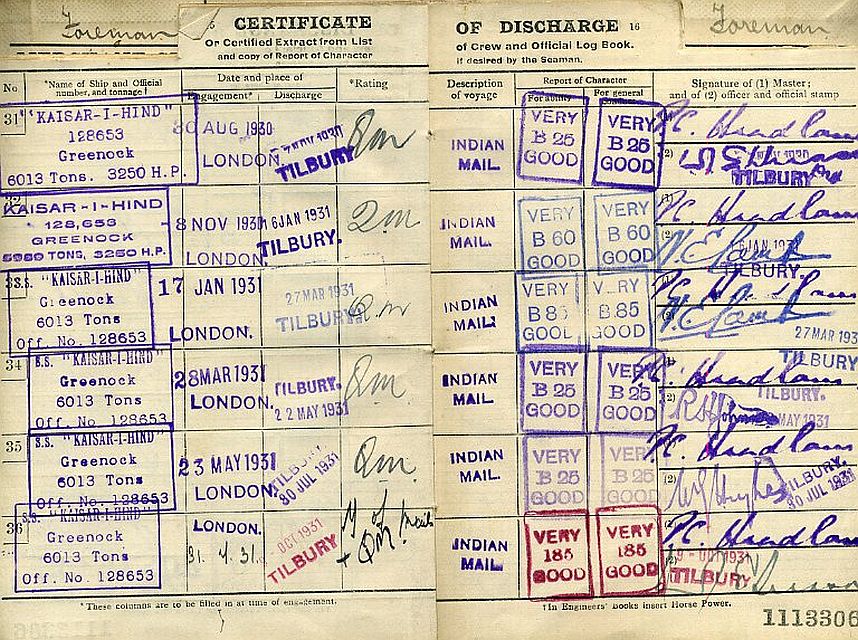 Foreman
CERTIFICATE
Or Certified Extract from List
and copy of Report of Character
No
*Name of Ship and Official
number, and tonnage †
Date and place of
Engagement*
Discharge
*Rating
31
"KAISAR-I-HIND"
128653
Greenock
6013 Tons. 3250 H.P.
30 AUG 1930
LONDON
NOV 1930
TILBURY
Qm
KAISAR-I-HIND
128,653
GREENOCK
TONS, 3250 H.P.
8 NOV 1930
LONDON
6 JAN 1931
TILBURY.
Qm
S.S. "KAISAR-I-HIND"
Greenock
6013 Tons
Off. No. 128653
17 JAN 1931
LONDON.
27 MAR 1931
TILBURY
Qm
34
S.S. "KAISAR-I-HIND"
Greenock
6013 Tons
Off. No. 128653
28 MAR 1931
LONDON.
TILBURY.
22 MAY 1931
Qm
35
S.S. "KAISAR-I-HIND"
Greenock
6013 Tons
Off. No. 128653
23 MAY 1931
LONDON
TILBURY.
30 JUL 1931
Qm
36
S.S. "KAISAR-I-HIND"
Greenock
6013 Tons
Off. No. 128653
LONDON.
31.7.31.
OCT 1931
TILBURY
+ QM
*These columns are to be filled in at time of engagement.
Foreman
OF DISCHARGE 16
of Crew and Official Log Book.
if desired by the Seaman.
Description
of voyage
Report of Character
For ability
For general
conduct
Signature of (1) Master;
and of (2) officer and official stamp
INDIAN
MAIL.
VERY
B 25
GOOD
VERY
B 25
GOOD
(1)
P.C. Headlam
(2)
TILBURY
INDIAN
MAIL.
VERY
B 60
GOOD
VERY
B 60
GOOD
(1)
P.C. Headlam
(2)
6 JAN 1931
TILBURY.
INDIAN
MAIL.
VERY
B 85
GOOD
VERY
B 85
GOOD
P.C. Headlam
27 MAR 193
TILBURY
INDIAN
MAIL.
VERY
B 25
GOOD
VERY
B 25
GOOD
P.C. Headlam
(2)
TILBURY
MAY 1931
INDIAN
MAIL.
VERY
B 25
GOOD
VERY
B 25
GOOD
P.C. Headlam
(2)
TILBURY.
30 JUL 1931
INDIAN
MAIL.
VERY
185
GOOD
VERY
185
GOOD
P.C. Headlam
9 - OCT 1931
TILBURY
†In Engineers' Books insert Horse Power.
1113306